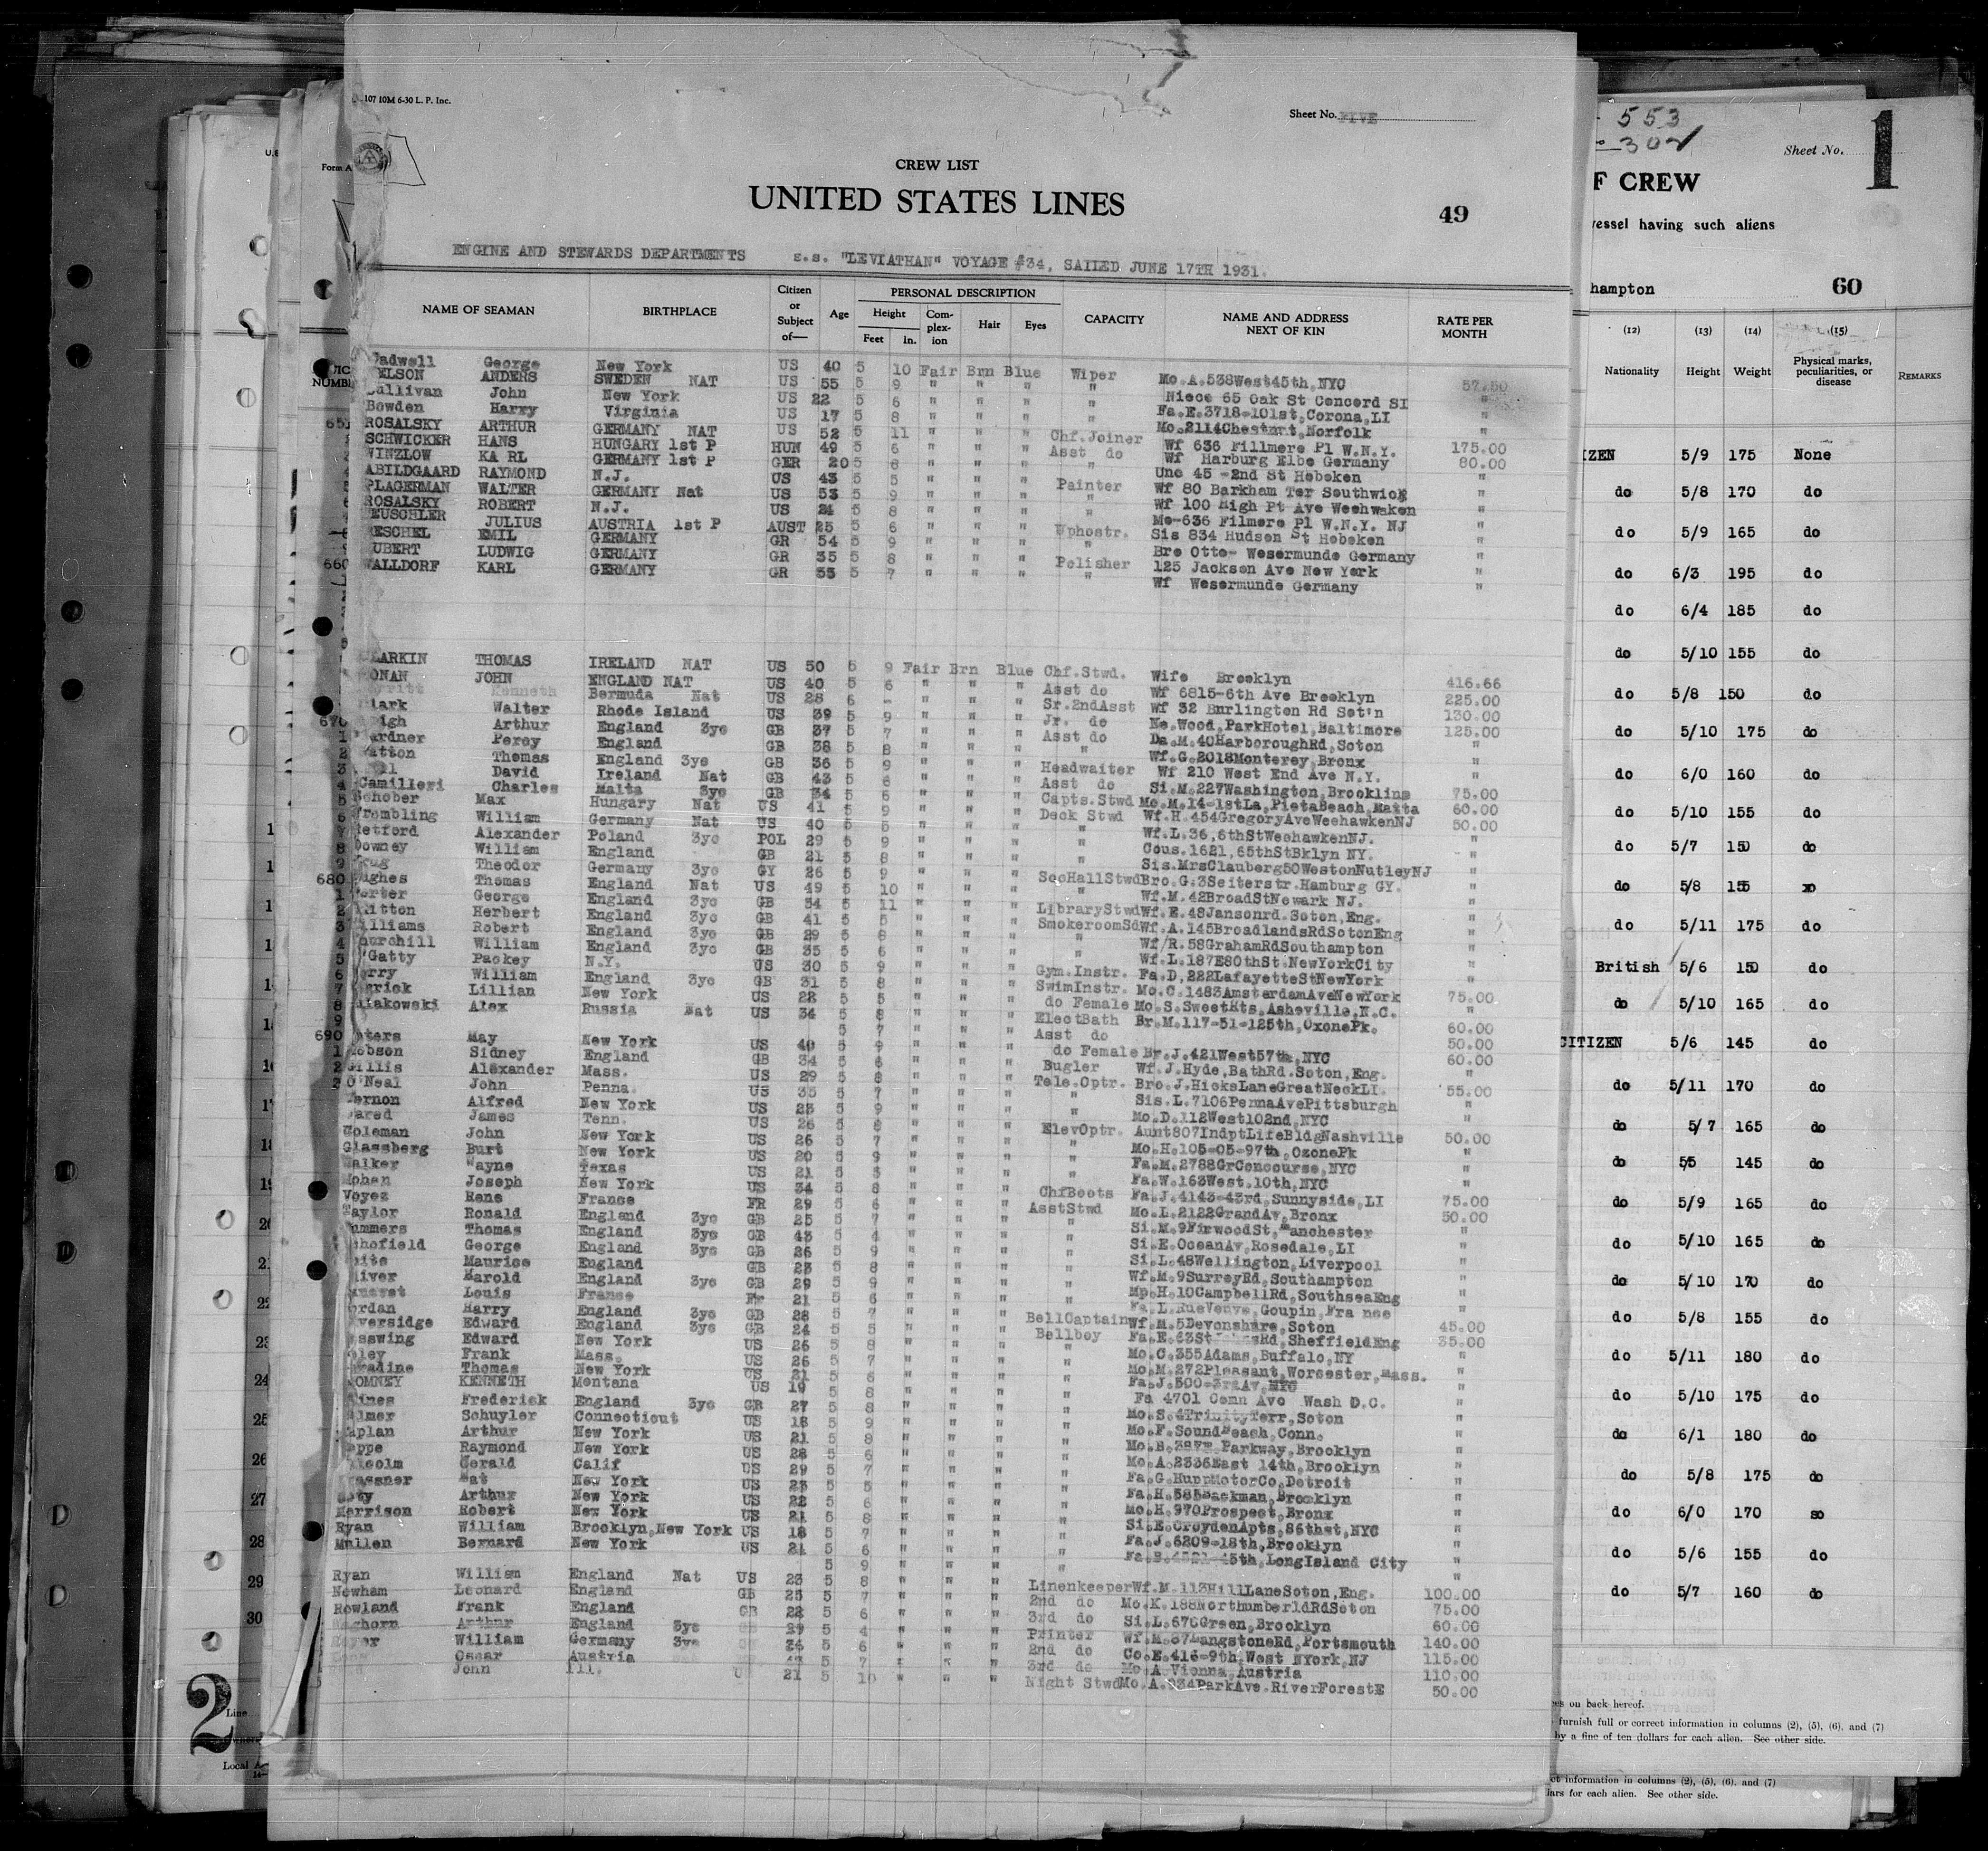 107 10M 6-30 L. P. Inc.
Sheet No. FIVE
CREW LIST
UNITED STATES LINES
49
ENGINE AND STEWARDS DEPARTMENTS s.s. "LEVIATHAN" VOYAGE #34, SAILED JUNE 17TH 1931.
NAME OF SEAMAN BIRTHPLACE Citizen or Subject of— Age PERSONAL DESCRIPTION Height Feet In. Complexion Hair Eyes CAPACITY NAME AND ADDRESS NEXT OF KIN RATE PER MONTH
George New York US 40 5 10 Fair Brn Blue Wiper Mo.A.538West45th,NYC 57.50
ANDERS SWEDEN NAT US 55 5 9 " " " " Niece 65 Oak St Concord SI "
John New York US 22 5 6 " " " " Fa.E.3718-101st,Corona,LI "
Bowden Harry Virginia US 17 5 8 " " " " Mo.2114Chestnut,Norfolk "
ROSALSKY ARTHUR GERMANY NAT US 52 5 11 " " " Chf.Joiner Wf 636 Fillmore Pl W.N.Y. 175.00
SCHWICKER HANS HUNGARY 1st P HUN 49 5 6 " " " Asst do Wf Harburg Elbe Germany 80.00
WINZLOW KARL GERMANY 1st P GER 20 5 8 " " " " Unc 45 -2nd St Hoboken "
ABILDGAARD RAYMOND N.J. US 43 5 5 " " " Painter Wf 80 Barkham Ter Southwick "
PLAGERMAN WALTER GERMANY Nat US 53 5 9 " " " " Wf 100 High Pt Ave Weehwaken "
ROSALSKY ROBERT N.J. US 21 5 8 " " " " Mo-636 Filmore Pl W.N.Y. NJ "
JULIUS AUSTRIA 1st P AUST 25 5 6 " " " Uphostr. Sis 834 Hudson St Hoboken "
EMIL GERMANY GR 54 5 9 " " " " Bro Otto- Wesermunde Germany "
LUDWIG GERMANY GR 35 5 8 " " " Polisher 125 Jackson Ave New York "
WALLDORF KARL GERMANY GR 35 5 7 " " " " Wf Wesermunde Germany "
LARKIN THOMAS IRELAND NAT US 50 5 9 Fair Brn Blue Chf.Stwd. Wife Brooklyn 416.66
JOHN ENGLAND NAT US 40 5 6 " " " Asst do Wf 6815-6th Ave Brooklyn 225.00
Kenneth Bermuda Nat US 28 6 - " " " Sr.2ndAsst Wf 32 Burlington Rd Sot'n 130.00
Walter Rhode Island US 39 5 9 " " " Jr. do Ne.Wood,ParkHotel,Baltimore 125.00
Arthur England 3yc GB 37 5 7 " " " Asst do Da.M.40HarboroughRd,Soton "
Percy England GB 38 5 8 " " " " Wf.G.2018Monterey,Bronx "
Thomas England 3yc GB 36 5 9 " " " Headwaiter Wf 210 West End Ave N.Y. 75.00
David Ireland Nat GB 43 5 6 " " " Asst do Si.M.227Washington,Brookline 60.00
Camilleri Charles Malta 3yc GB 34 5 6 " " " Capts.Stwd Mo.M.14-1stLa,PietaBeach,Malta 50.00
Schober Max Hungary Nat US 41 5 9 " " " Deck Stwd Wf.H.454GregoryAveWeehawkenNJ "
William Germany Nat US 40 5 5 " " " " Wf.L.36,6thStWeehawkenNJ. "
Alexander Poland 3yc POL 29 5 9 " " " " Cous.1621,65thStBklyn NY. "
Downey William England GB 21 5 8 " " " " Sis.MrsClauberg50WestonNutleyNJ "
Theodor Germany 3yc GY 26 5 9 " " " SocHallStwd Bro.G.3Seiterstr.Hamburg GY. "
Thomas England Nat US 49 5 10 " " " " Wf.M.42BroadStNewark NJ. "
George England 3yc GB 34 5 11 " " " LibraryStwd Wf.E.48Jansonrd.Soton,Eng. "
Herbert England 3yc GB 41 5 5 " " " SmokeroomSd Wf.A.145BroadlandsRdSotonEng "
Robert England 3yc GB 29 5 8 " " " " Wf/R.58GrahamRdSouthampton "
William England 3yc GB 35 5 6 " " " " Wf.L.187E80thSt.NewYorkCity "
Packey N.Y. US 30 5 9 " " " Gym.Instr. Fa.D,222LafayetteStNewYork "
William England 3yc GB 31 5 8 " " " SwimInstr. Mo.C.1483AmsterdamAveNewYork 75.00
Lillian New York US 22 5 5 " " " do Female Mo.S.SweetHts,Asheville,N.C. "
Alex Russia Nat US 34 5 8 " " " ElectBath Br.M.117-51-125th,OzonePk. 60.00
5 7 " " " Asst do 50.00
May New York US 40 5 9 " " " do Female Br.J.421West57th,NYC 60.00
Sidney England GB 34 5 6 " " " Bugler Wf.J.Hyde,BathRd.Soton,Eng. "
Gillis Alexander Mass. US 29 5 8 " " " Tele.Optr. Bro.J.HicksLaneGreatNeckLI. 55.00
O'Neal John Penna. US 35 5 7 " " " " Sis.L.7106PennaAvePittsburgh "
Vernon Alfred New York US 23 5 9 " " " " Mo.D.112West102nd,NYC "
James Tenn. US 26 5 8 " " " ElevOptr. Aunt807IndptLifeBldgNashville 50.00
Coleman John New York US 26 5 7 " " " " Mo.H.105-05-97th,OzonePk "
Glassberg Burt New York US 20 5 9 " " " " Fa.M.2788GrConcourse,NYC "
Walker Wayne Texas US 21 5 5 " " " " Fa.W.163West.10th,NYC "
Mohan Joseph New York US 34 5 8 " " " ChfBoots Fa.J.4143-43rd,Sunnyside,LI 75.00
Voyez Rene France FR 29 5 6 " " " AsstStwd Mo.L.2122GrandAv,Bronx 50.00
Taylor Ronald England 3yc GB 25 5 7 " " " " Si.M.9FirwoodSt,Manchester "
Thomas England 3yc GB 43 5 4 " " " " Si.E.OceanAv,Rosedale,LI "
George England 3yc GB 26 5 9 " " " " Si.L.48Wellington,Liverpool "
Maurice England GB 23 5 8 " " " " Wf.M.9SurreyRd,Southampton "
Harold England 3yc GB 29 5 9 " " " " Mp.H.10CampbellRd,SouthseaEng "
Louis France Fr 21 5 6 " " " " Goupin,France "
Harry England 3yc GB 28 5 7 " " " BellCaptain Wf.M.5Devonshire,Soton 45.00
Edward England 3yc GB 24 5 5 " " " Bellboy SheffieldEng 35.00
Edward New York US 26 5 8 " " " " Mo.C.355Adams,Buffalo,NY "
Frank Mass. US 26 5 7 " " " " Mo.M.272Pleasant,Worcester,Mass. "
Thomas New York US 21 5 6 " " " " Fa.J.500-3rdAv,NYC "
KENNETH Montana US 19 5 8 " " " " Fa 4701 Conn Ave Wash D.C. "
Frederick England 3yc GB 27 5 8 " " " " Mo.S.4TrinityTerr,Soton "
Schuyler Connecticut US 18 5 9 " " " " Mo.F.SoundBeach,Conn. "
Arthur New York US 21 5 8 " " " " Parkway,Brooklyn "
Raymond New York US 28 5 6 " " " " Mo.A.2336East 14th,Brooklyn "
Gerald Calif US 29 5 7 " " " " Fa.G.HuppMotorCo,Detroit "
Nat New York US 23 5 5 " " " " Brooklyn "
Arthur New York US 22 5 6 " " " " Mo.H.970Prospect,Bronx "
Robert New York US 21 5 8 " " " " Si.E.CroydenApts,86thst,NYC "
Ryan William Brooklyn,New York US 18 5 7 " " " " Fa.J.6209-18th,Brooklyn "
Mullen Bernard New York US 21 5 6 " " " " LongIsland City "
5 9 " " " "
Ryan William England Nat US 23 5 8 " " " Linenkeeper Wf.M.113HillLaneSoton,Eng. 100.00
Newham Leonard England GB 25 5 7 " " " 2nd do Mo.K.188NorthumberldRdSoton 75.00
Rowland Frank England GB 22 5 6 " " " 3rd do Si.L.676Green,Brooklyn 60.00
Arthur England 3yc 29 5 4 " " " Printer Wf.M.37LangstoneRd,Portsmouth 140.00
William Germany 3yc 24 5 6 " " " 2nd do Co.E.416-9th,West NYork,NJ 115.00
Oscar Austria 5 7 " " " 3rd do Mo.A.Vienna,Austria 110.00
John Ill. 21 5 10 " " " Night Stwd Mo.A.834ParkAve.RiverForest 50.00
553
302
Sheet No. 1
F CREW
vessel having such aliens
hampton 60
(12) (13) (14) (15)
Nationality Height Weight Physical marks, peculiarities, or disease REMARKS
IZEN 5/9 175 None
do 5/8 170 do
do 5/9 165 do
do 6/3 195 do
do 6/4 185 do
do 5/10 155 do
do 5/8 150 do
do 5/10 175 do
do 6/0 160 do
do 5/10 155 do
do 5/7 150 do
do 5/8 155 xo
do 5/11 175 do
British 5/6 150 do
do 5/10 165 do
CITIZEN 5/6 145 do
do 5/11 170 do
do 5/7 165 do
do 55 145 do
do 5/9 165 do
do 5/10 165 do
do 5/10 170 do
do 5/8 155 do
do 5/11 180 do
do 5/10 175 do
do 6/1 180 do
do 5/8 175 do
do 6/0 170 so
do 5/6 155 do
do 5/7 160 do
es on back hereof.
furnish full or correct information in columns (2), (5), (6), and (7)
by a fine of ten dollars for each alien. See other side.
ct information in columns (2), (5), (6), and (7)
lars for each alien. See other side.
2
Line
Local A